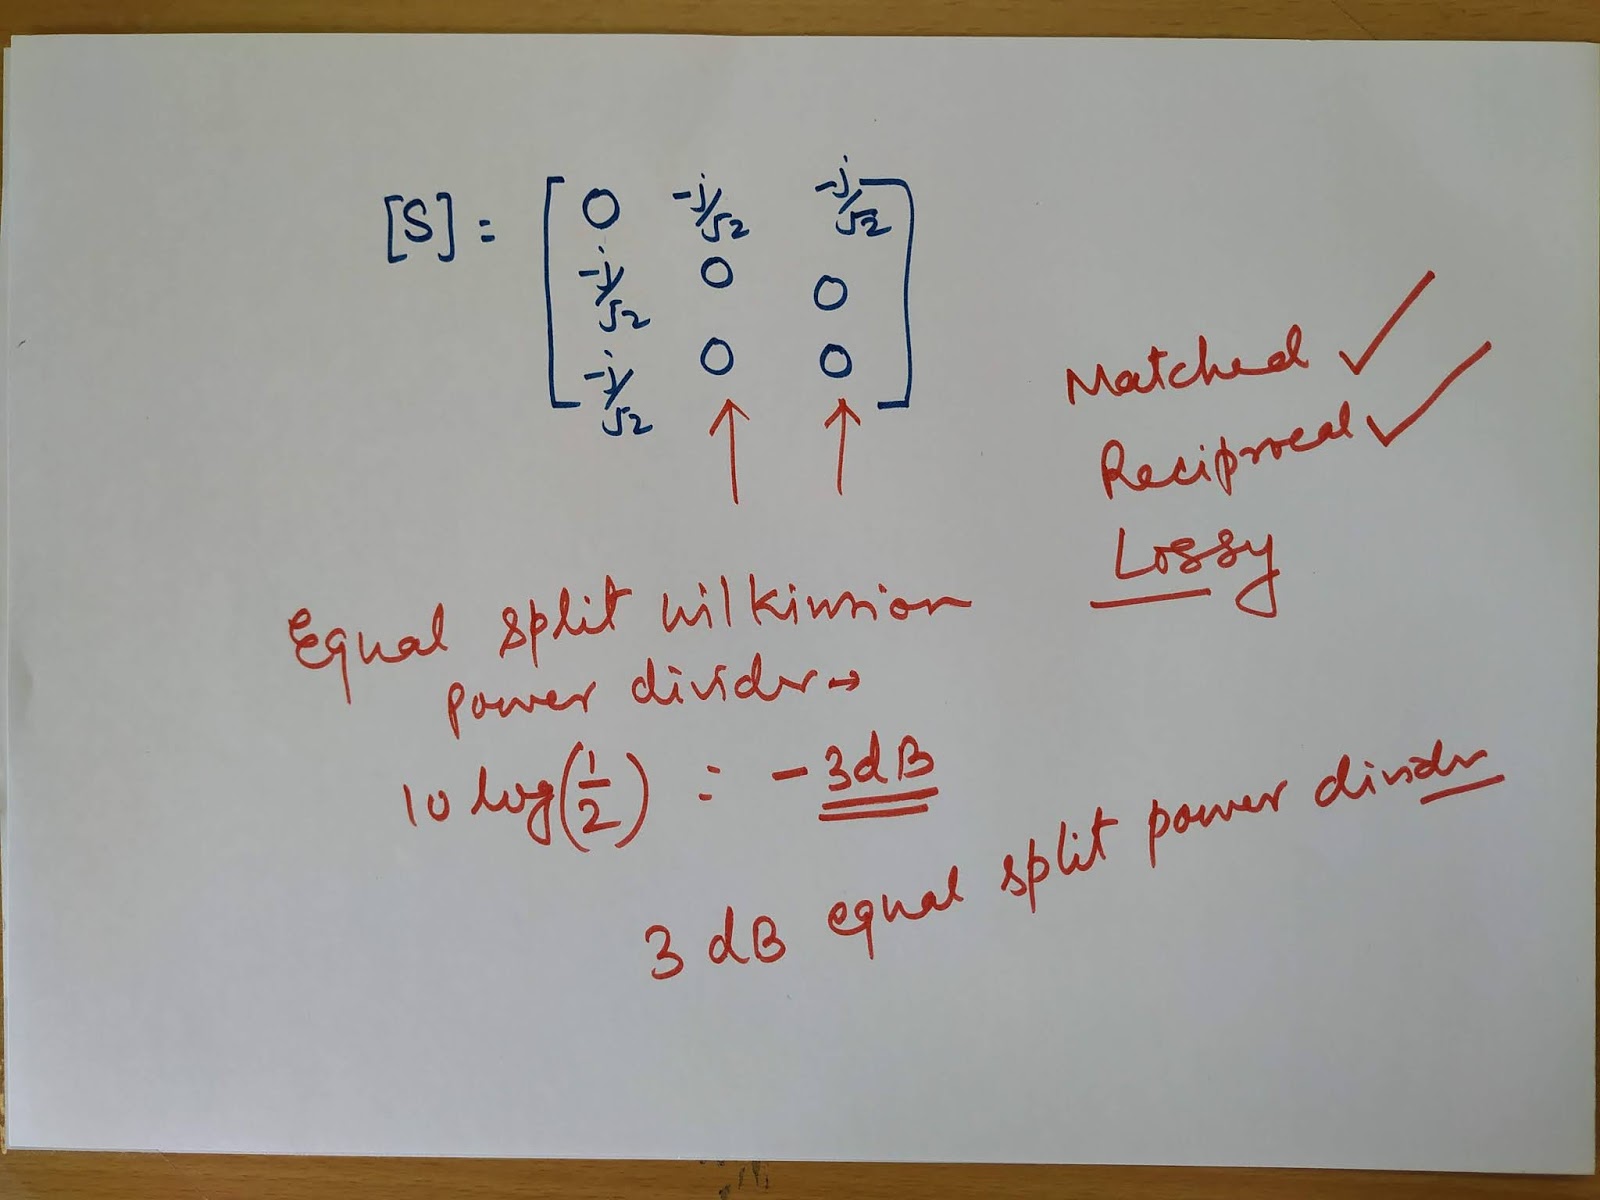 [S] = [ 0 -j/√2 -j/√2
-j/√2 0 0
-j/√2 0 0 ]
Matched ✓
Reciprocal ✓
Lossy
Equal split wilkinsion
power divider →
10 log(1/2) = -3dB
3 dB equal split power divider